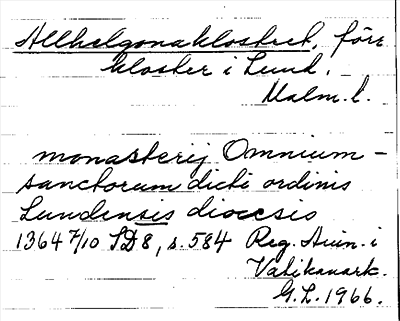 Allhelgonaklostret, före
kloster i Lund,
Malm. l.
monasterij Omnium-
sanctorum dicti ordinis
Lundensis diocesis
1364 7/10 SD 8, s. 584 Reg. Avin. i
Vatikanark.
G.L. 1966.